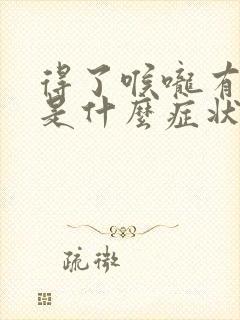 得了喉嚨有
是什麼症狀
疏微